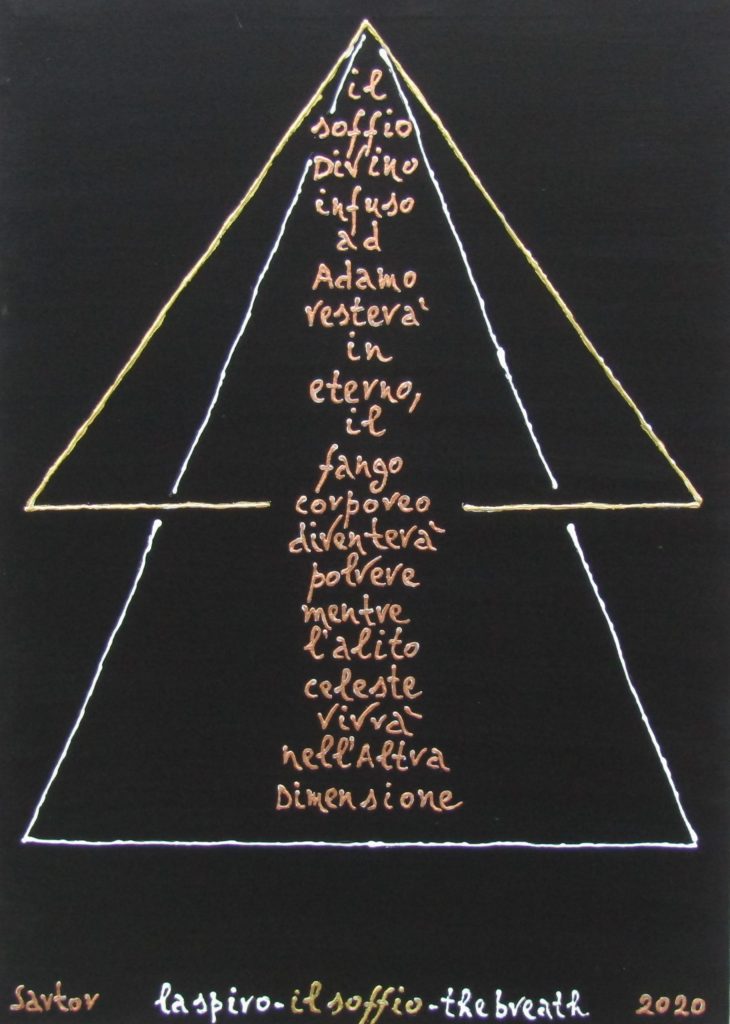 il
soffio
Divino
infuso
ad
Adamo
resterà
in
eterno,
il
fango
corporeo
diventerà
polvere
mentre
l'alito
celeste
vivrà
nell'Altra
Dimensione
Sartor la spiro - il soffio - the breath 2020